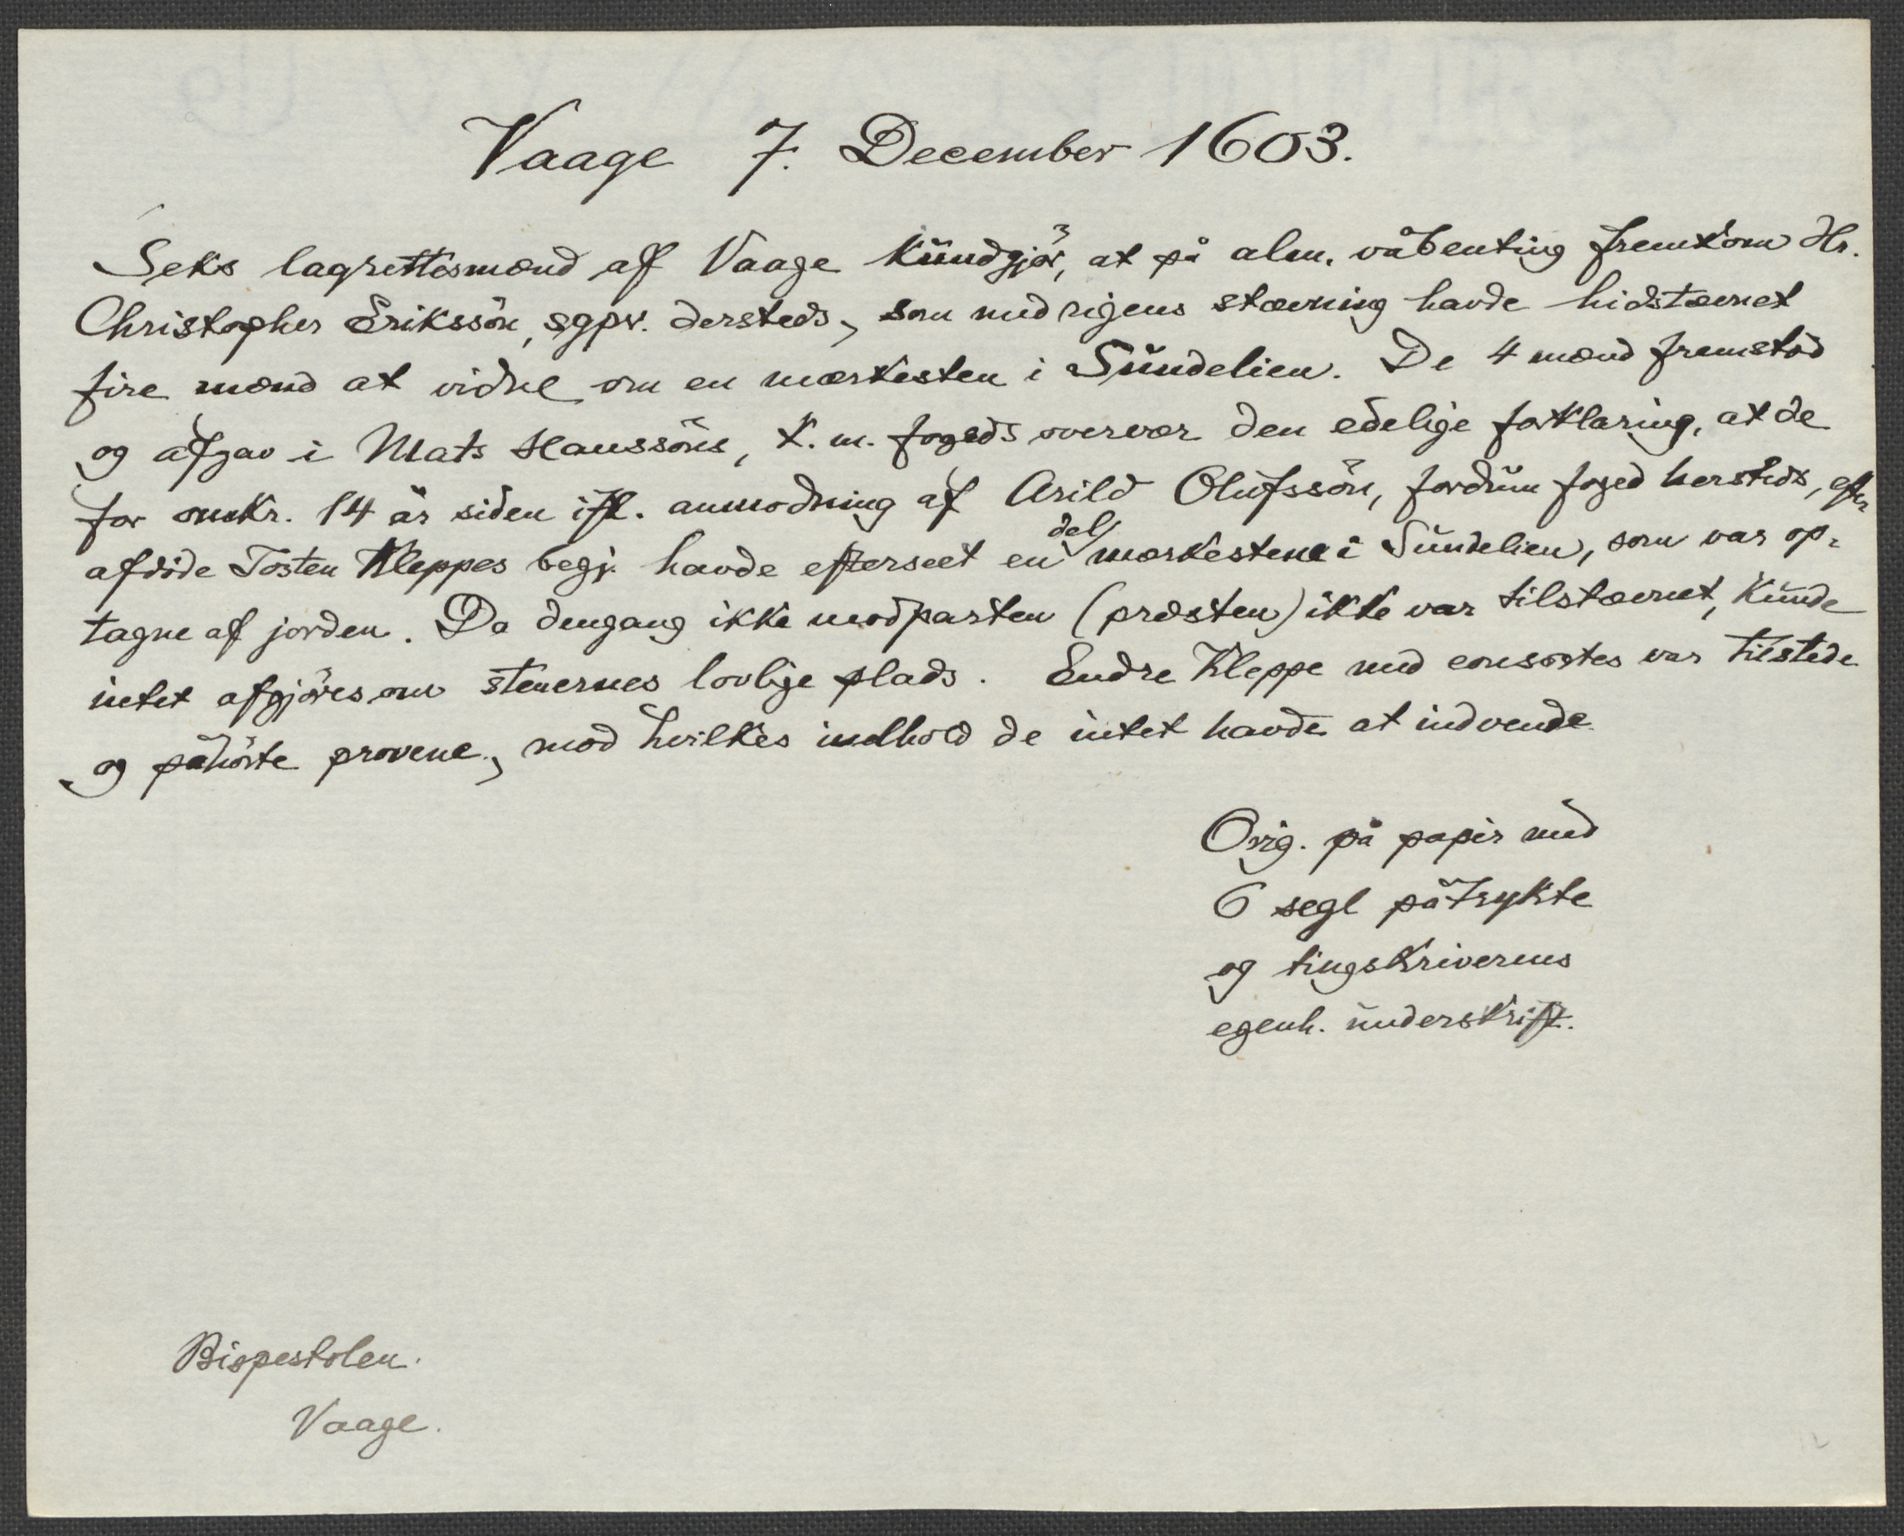 Vaage 7. December 1603.
Seks lagrettesmænd af Vaage kundgjør, at på alm. våbenting fremkom Hr.
Christopher Erikssön, sgpr. dersteds, som med rigens stævning havde hidstævnet
fire mænd at vidne om en mærkesten i Sundelien. De 4 mænd fremstod
og afgav i Mats Hanssöns, k. m. fogeds overvær den edelige forklaring, at de
for omkr. 14 år siden ifl. anmodning af Arild Olufssön, fordum foged hersteds, efter
afdöde Tosten Kleppes begj. havde efterseet en del mærkestene i Sundelien, som var op-
tagne af jorden. Da dengang ikke modparten (præsten) ikke var tilstævnet, kunde
intet afgjöres om stenernes lovlige plads. Endre Kleppe med consortes var tilstede
og påhörte provene, mod hvilkes indhold de intet havde at indvende.
Orig. på papir med
6 segl påtrykte
og tingskriverens
egenh. underskrift.
Bispestolen.
Vaage.